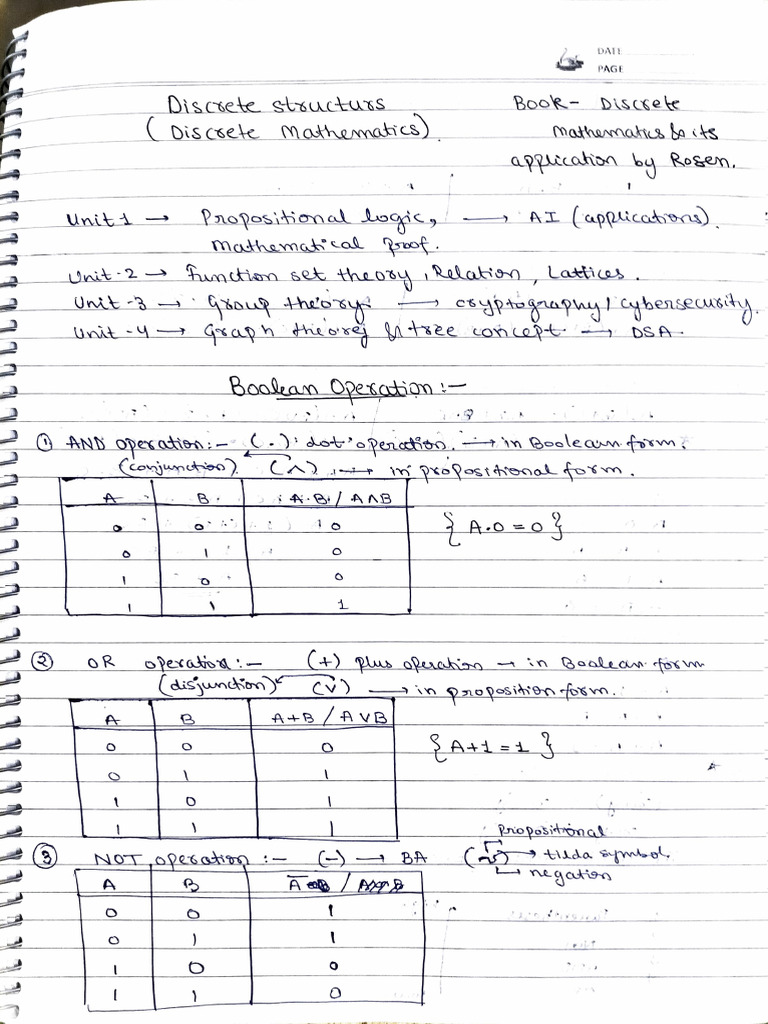 DATE
PAGE
Discrete structurs
(Discrete Mathematics).
Book - Discrete
Mathematics & its
application by Rosen.
Unit 1 → Propositional logic, → AI (applications).
Mathematical proof.
Unit-2 → Function set theory, Relation, Lattices.
Unit-3 → Group theory. → cryptography / cybersecurity.
Unit-4 → Graph theorej & tree concept. → DSA.
Boolean Operation :-
① AND operation :- (.) : dot operation. → in Boolean form.
(conjunction). ← (∧) → in propositional form.
A B A.B. / A∧B
0 0 0
0 1 0
1 0 0
1 1 1
{A.0 = 0}
② OR operation :- (+) plus operation → in Boolean form
(disjunction) ← (∨) → in proposition form.
A B A+B / A∨B
0 0 0
0 1 1
1 0 1
1 1 1
{A+1 = 1}
propositional
③ NOT operation :- (-) → BA (~) → tilda symbol.
negation
A B A̅ /
0 0 1
0 1 1
1 0 0
1 1 0